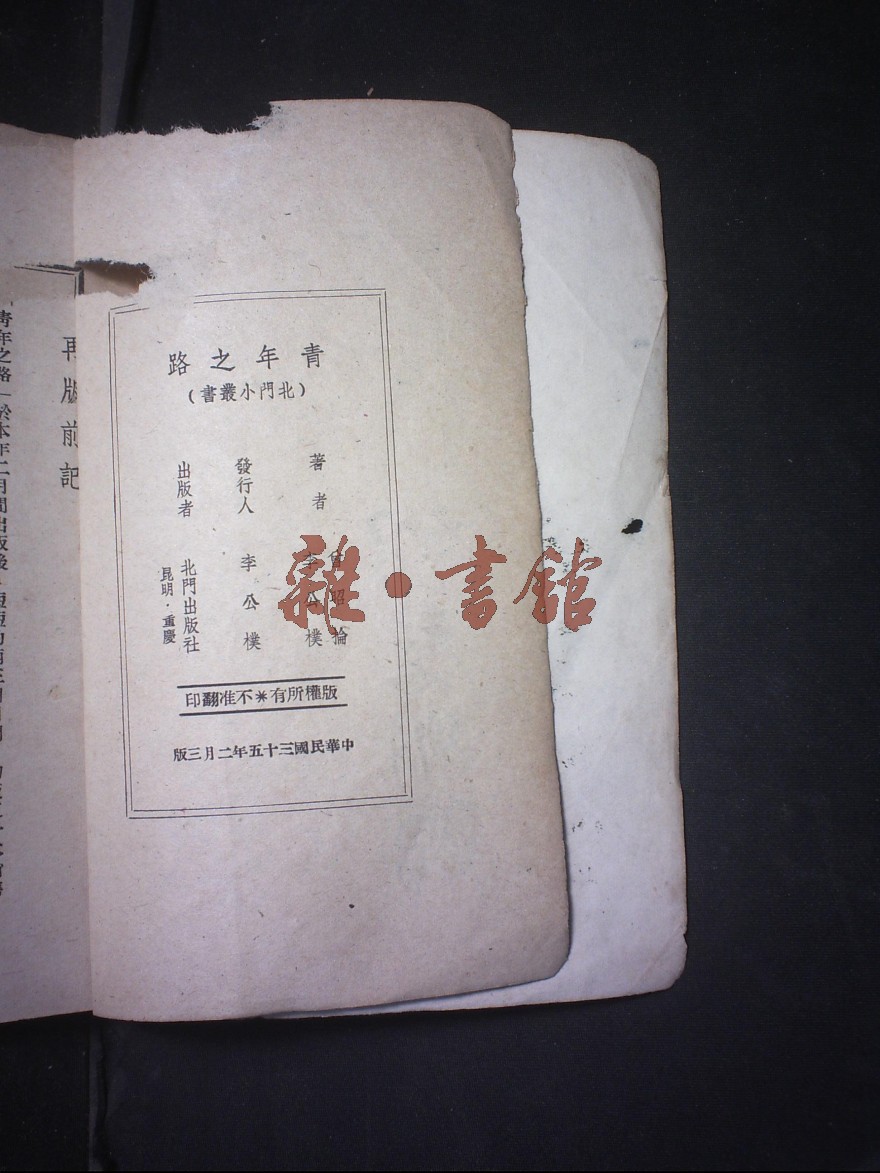 青年之路
(北門小叢書)
著者
昭掄
李公樸
發行人
李公樸
出版者
北門出版社
昆明·重慶
版權所有＊不准翻印
中華民國三十五年二月三版
再版前記
青年之路」於本年二月間出版後
雜·書館